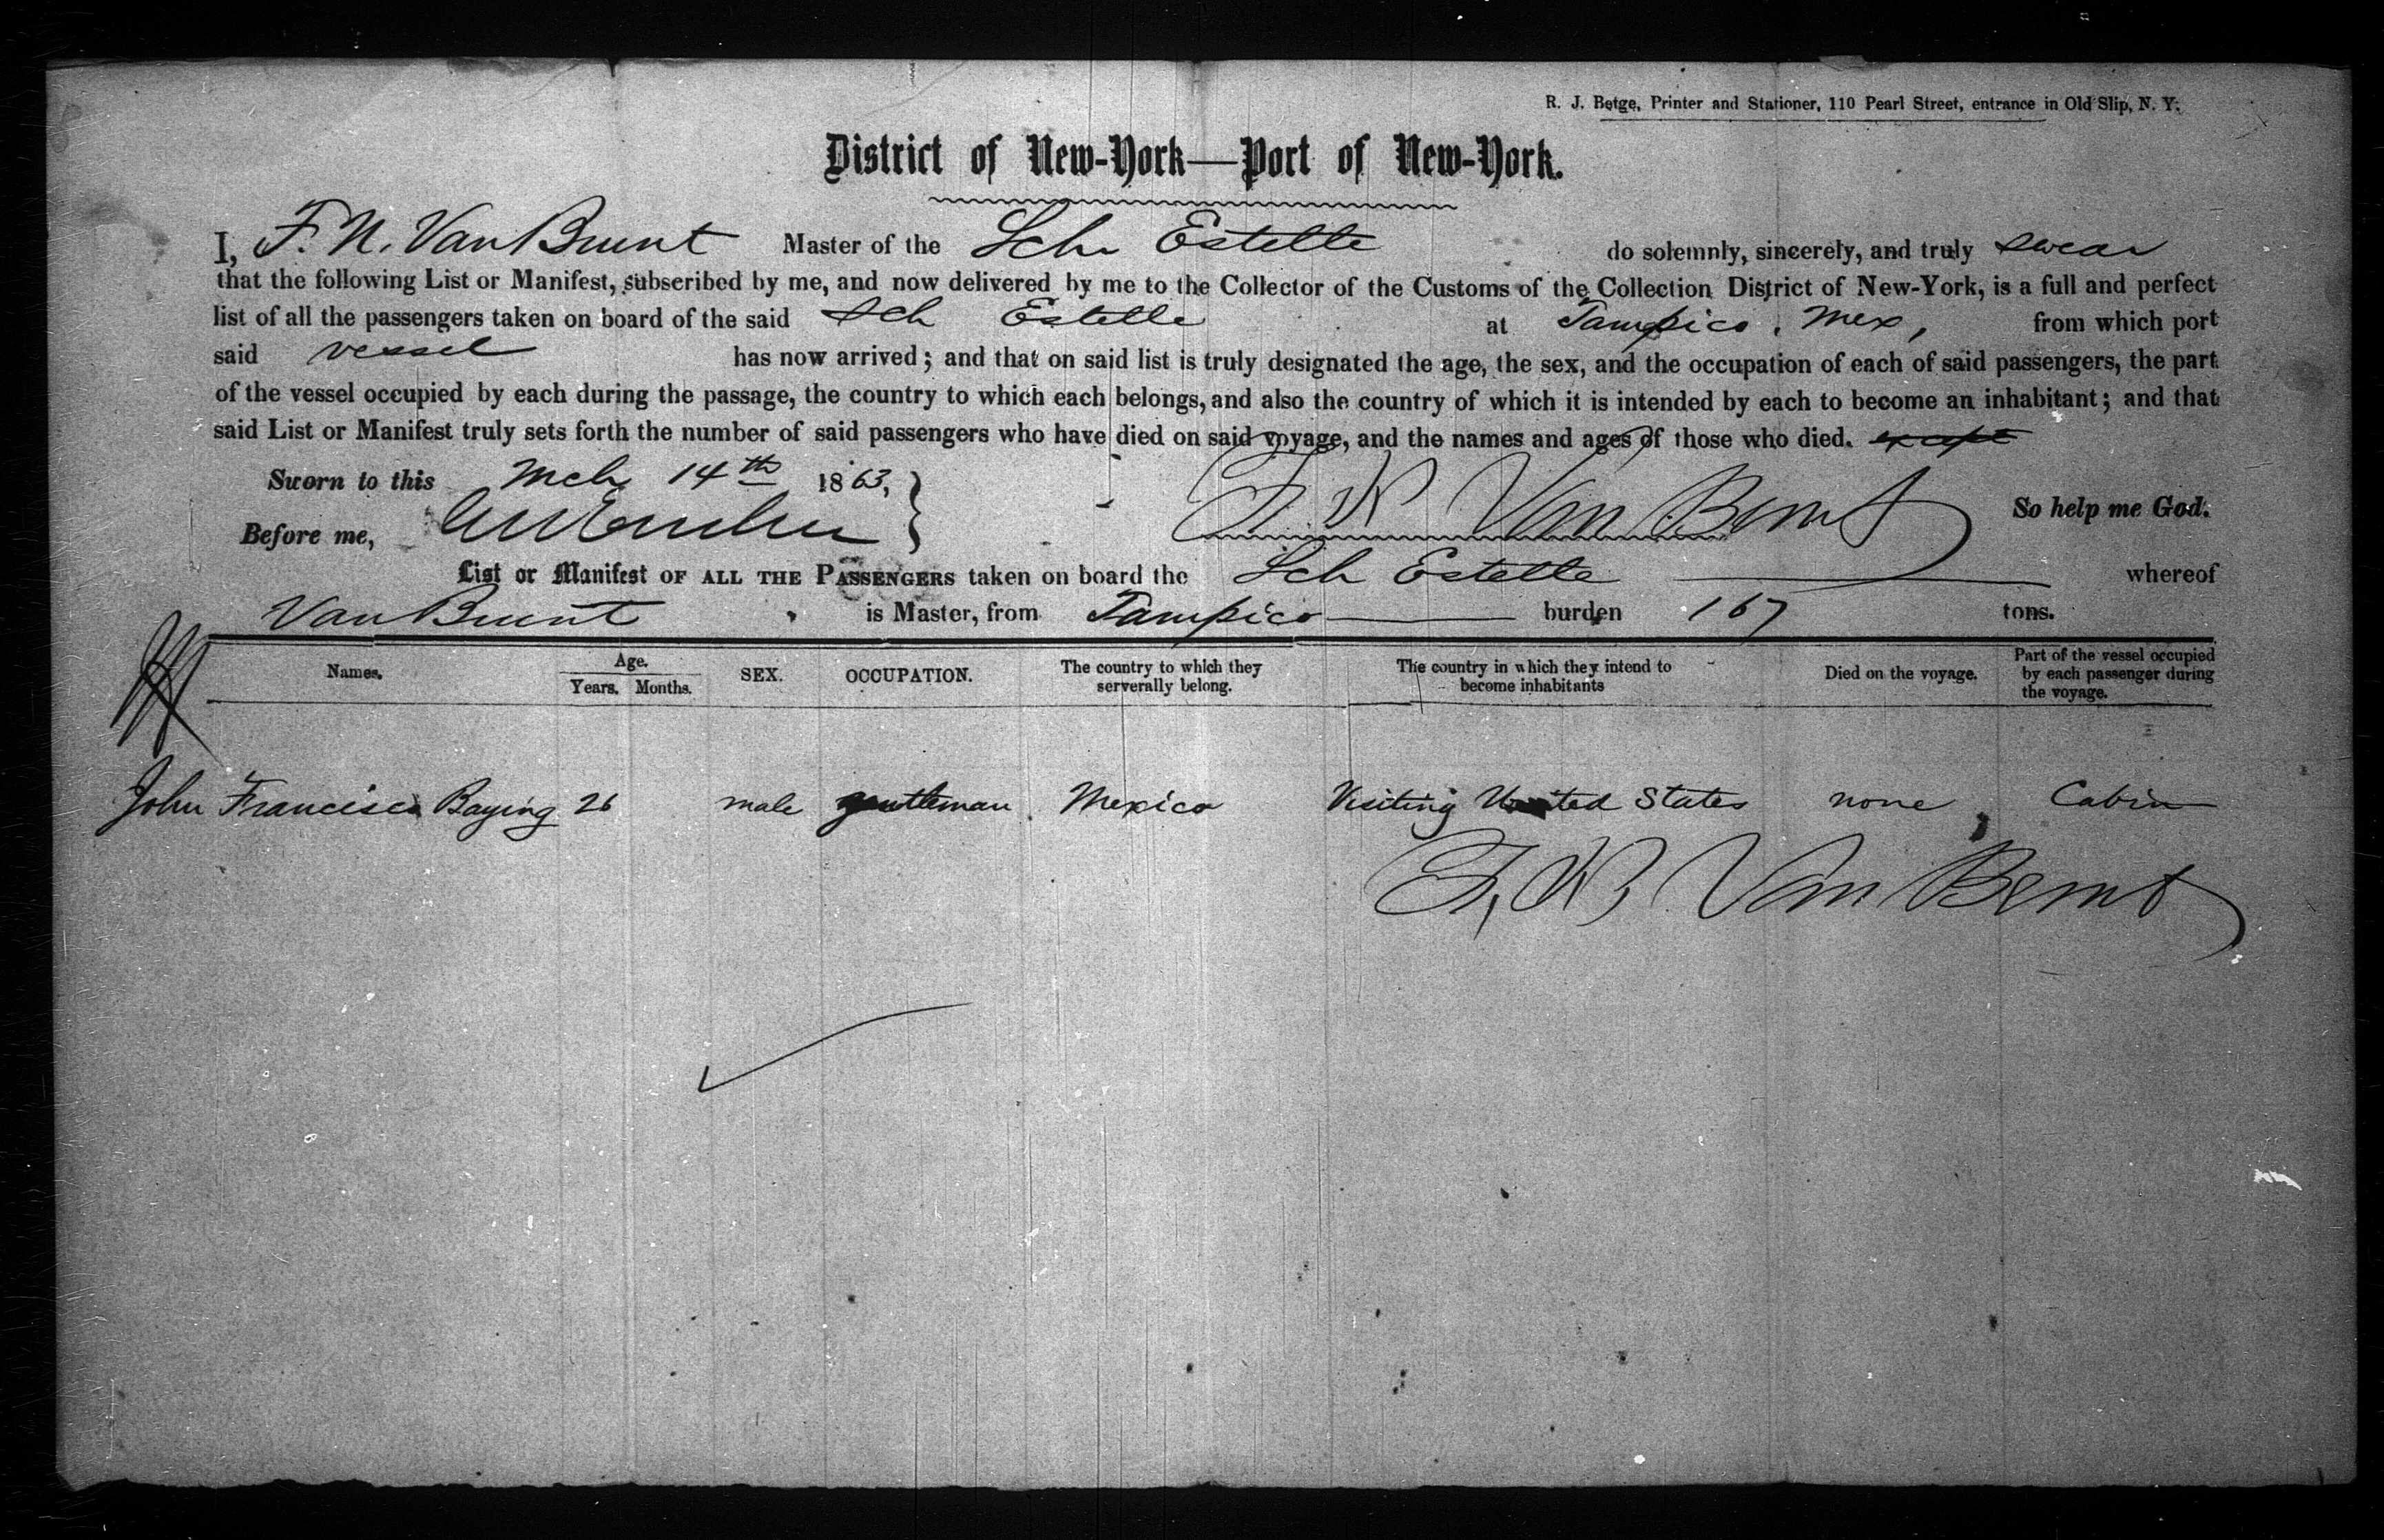 R. J. Betge, Printer and Stationer, 110 Pearl Street, entrance in Old Slip, N. Y.
District of New-York—Port of New-York.
I, F. N. Van Brunt Master of the Sch Estelle do solemnly, sincerely, and truly swear
that the following List or Manifest, subscribed by me, and now delivered by me to the Collector of the Customs of the Collection District of New-York, is a full and perfect
list of all the passengers taken on board of the said Sch Estelle at Tampico, Mex, from which port
said vessel has now arrived; and that on said list is truly designated the age, the sex, and the occupation of each of said passengers, the part
of the vessel occupied by each during the passage, the country to which each belongs, and also the country of which it is intended by each to become an inhabitant; and that
said List or Manifest truly sets forth the number of said passengers who have died on said voyage, and the names and ages of those who died. except
Sworn to this Mch 14th 1863,
F. N. Van Brunt So help me God.
Before me,
List or Manifest OF ALL THE PASSENGERS taken on board the Sch Estelle whereof
Van Brunt is Master, from Tampico burden 167 tons.
Names. Age. Years. Months. SEX. OCCUPATION. The country to which they serverally belong. The country in which they intend to become inhabitants Died on the voyage. Part of the vessel occupied by each passenger during the voyage.
John Francisco Baying 26 male gentleman Mexico Visiting United States none Cabin
F. N. Van Brunt